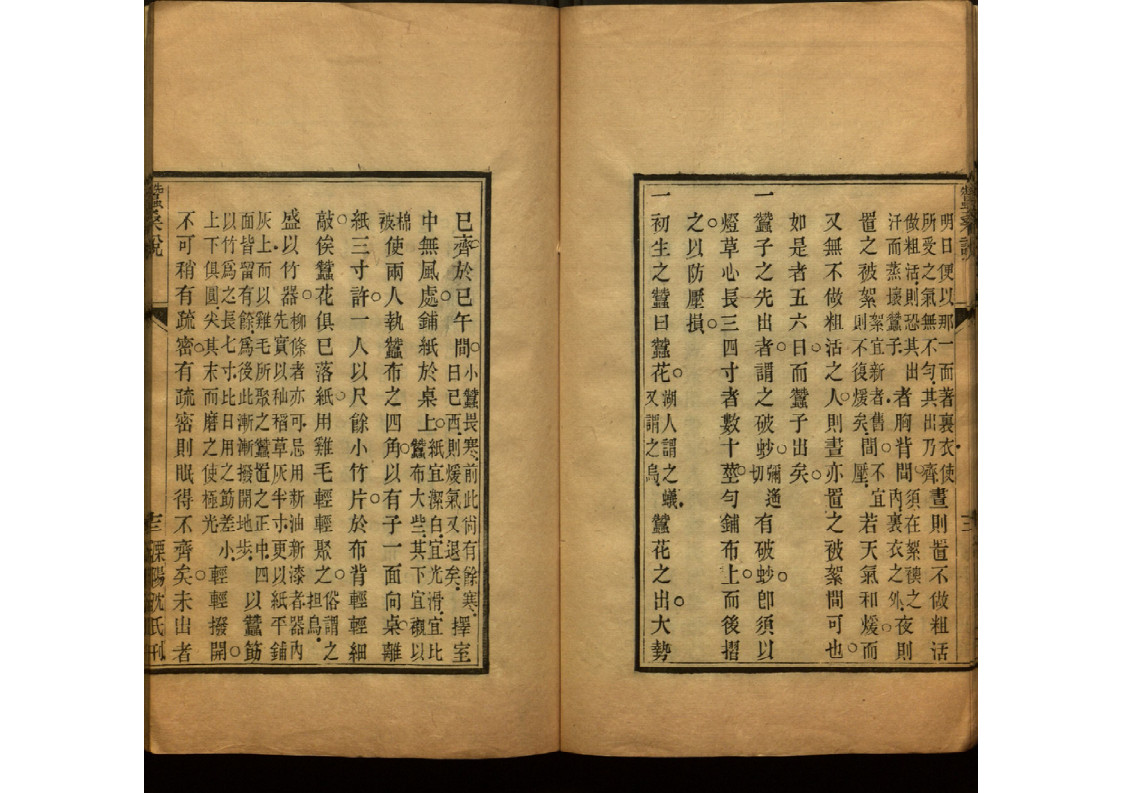 明日便以那一面著裏衣使
所受之氣無不勻其出乃齊
晝則置不做粗活
做粗活則恐其出
汗而蒸壞蠶子
者胸背間
須在絮襖之
內裏衣之外
夜則
置之被絮
絮宜新者售
則不復煖矣
間
不宜
壓
若天氣和煖而
又無不做粗活之人則晝亦置之被絮間可也
如是者五六日而蠶子出矣
一蠶子之先出者謂之破䖢
彌遙
切
有破䖢卽須以
燈草心長三四寸者數十莖勻鋪布上而後摺
之以防壓損
一初生之蠶曰蠶花
湖人謂之蟻
又謂之烏
蠶花之出大勢
已齊於巳午間
小蠶畏寒前此尚有餘寒
日已西則煖氣又退矣
擇室
中無風處鋪紙於桌上
紙宜潔白宜光滑宜比
蠶布大些其下宜襯以
棉
被
使兩人執蠶布之四角以有子一面向桌離
紙三寸許一人以尺餘小竹片於布背輕輕細
敲俟蠶花俱已落紙用雞毛輕輕聚之
俗謂之
担烏
盛以竹器
柳條者亦可忌用新油新漆者器內
先實以秈稻草灰半寸更以紙平鋪
灰上而以雞毛所聚之蠶置之正中四
面皆留有餘爲後此漸漸撥開地步
以蠶筯
以竹爲之長七寸比日用之筯差小
上下俱圓尖其末而磨之使極光
輕輕撥開
不可稍有疏密有疏密則眠得不齊矣未出者
蠶桑說
十三
溧陽沈氏刊